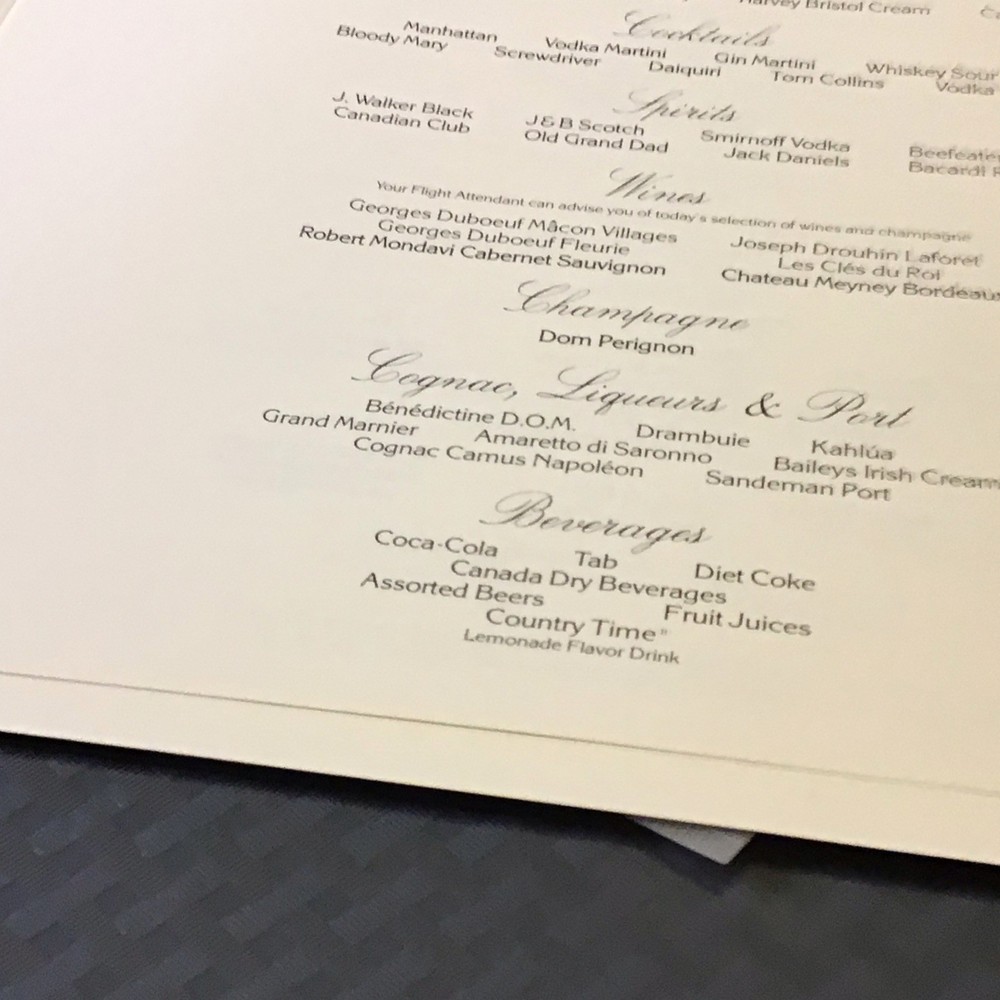 Harvey Bristol Cream
Cocktails
Manhattan Vodka Martini Gin Martini Whiskey Sour
Bloody Mary Screwdriver Daiquiri Tom Collins Vodka
Spirits
J. Walker Black J&B Scotch Smirnoff Vodka Beefeater
Canadian Club Old Grand Dad Jack Daniels Bacardi
Wines
Your Flight Attendant can advise you of today's selection of wines and champagne
Georges Duboeuf Mâcon Villages Joseph Drouhin Laforet
Georges Duboeuf Fleurie Les Clés du Roi
Robert Mondavi Cabernet Sauvignon Chateau Meyney Bordeaux
Champagne
Dom Perignon
Cognac, Liqueurs & Port
Bénédictine D.O.M. Drambuie Kahlúa
Grand Marnier Amaretto di Saronno Baileys Irish Cream
Cognac Camus Napoléon Sandeman Port
Beverages
Coca-Cola Tab Diet Coke
Canada Dry Beverages
Assorted Beers Fruit Juices
Country Time®
Lemonade Flavor Drink